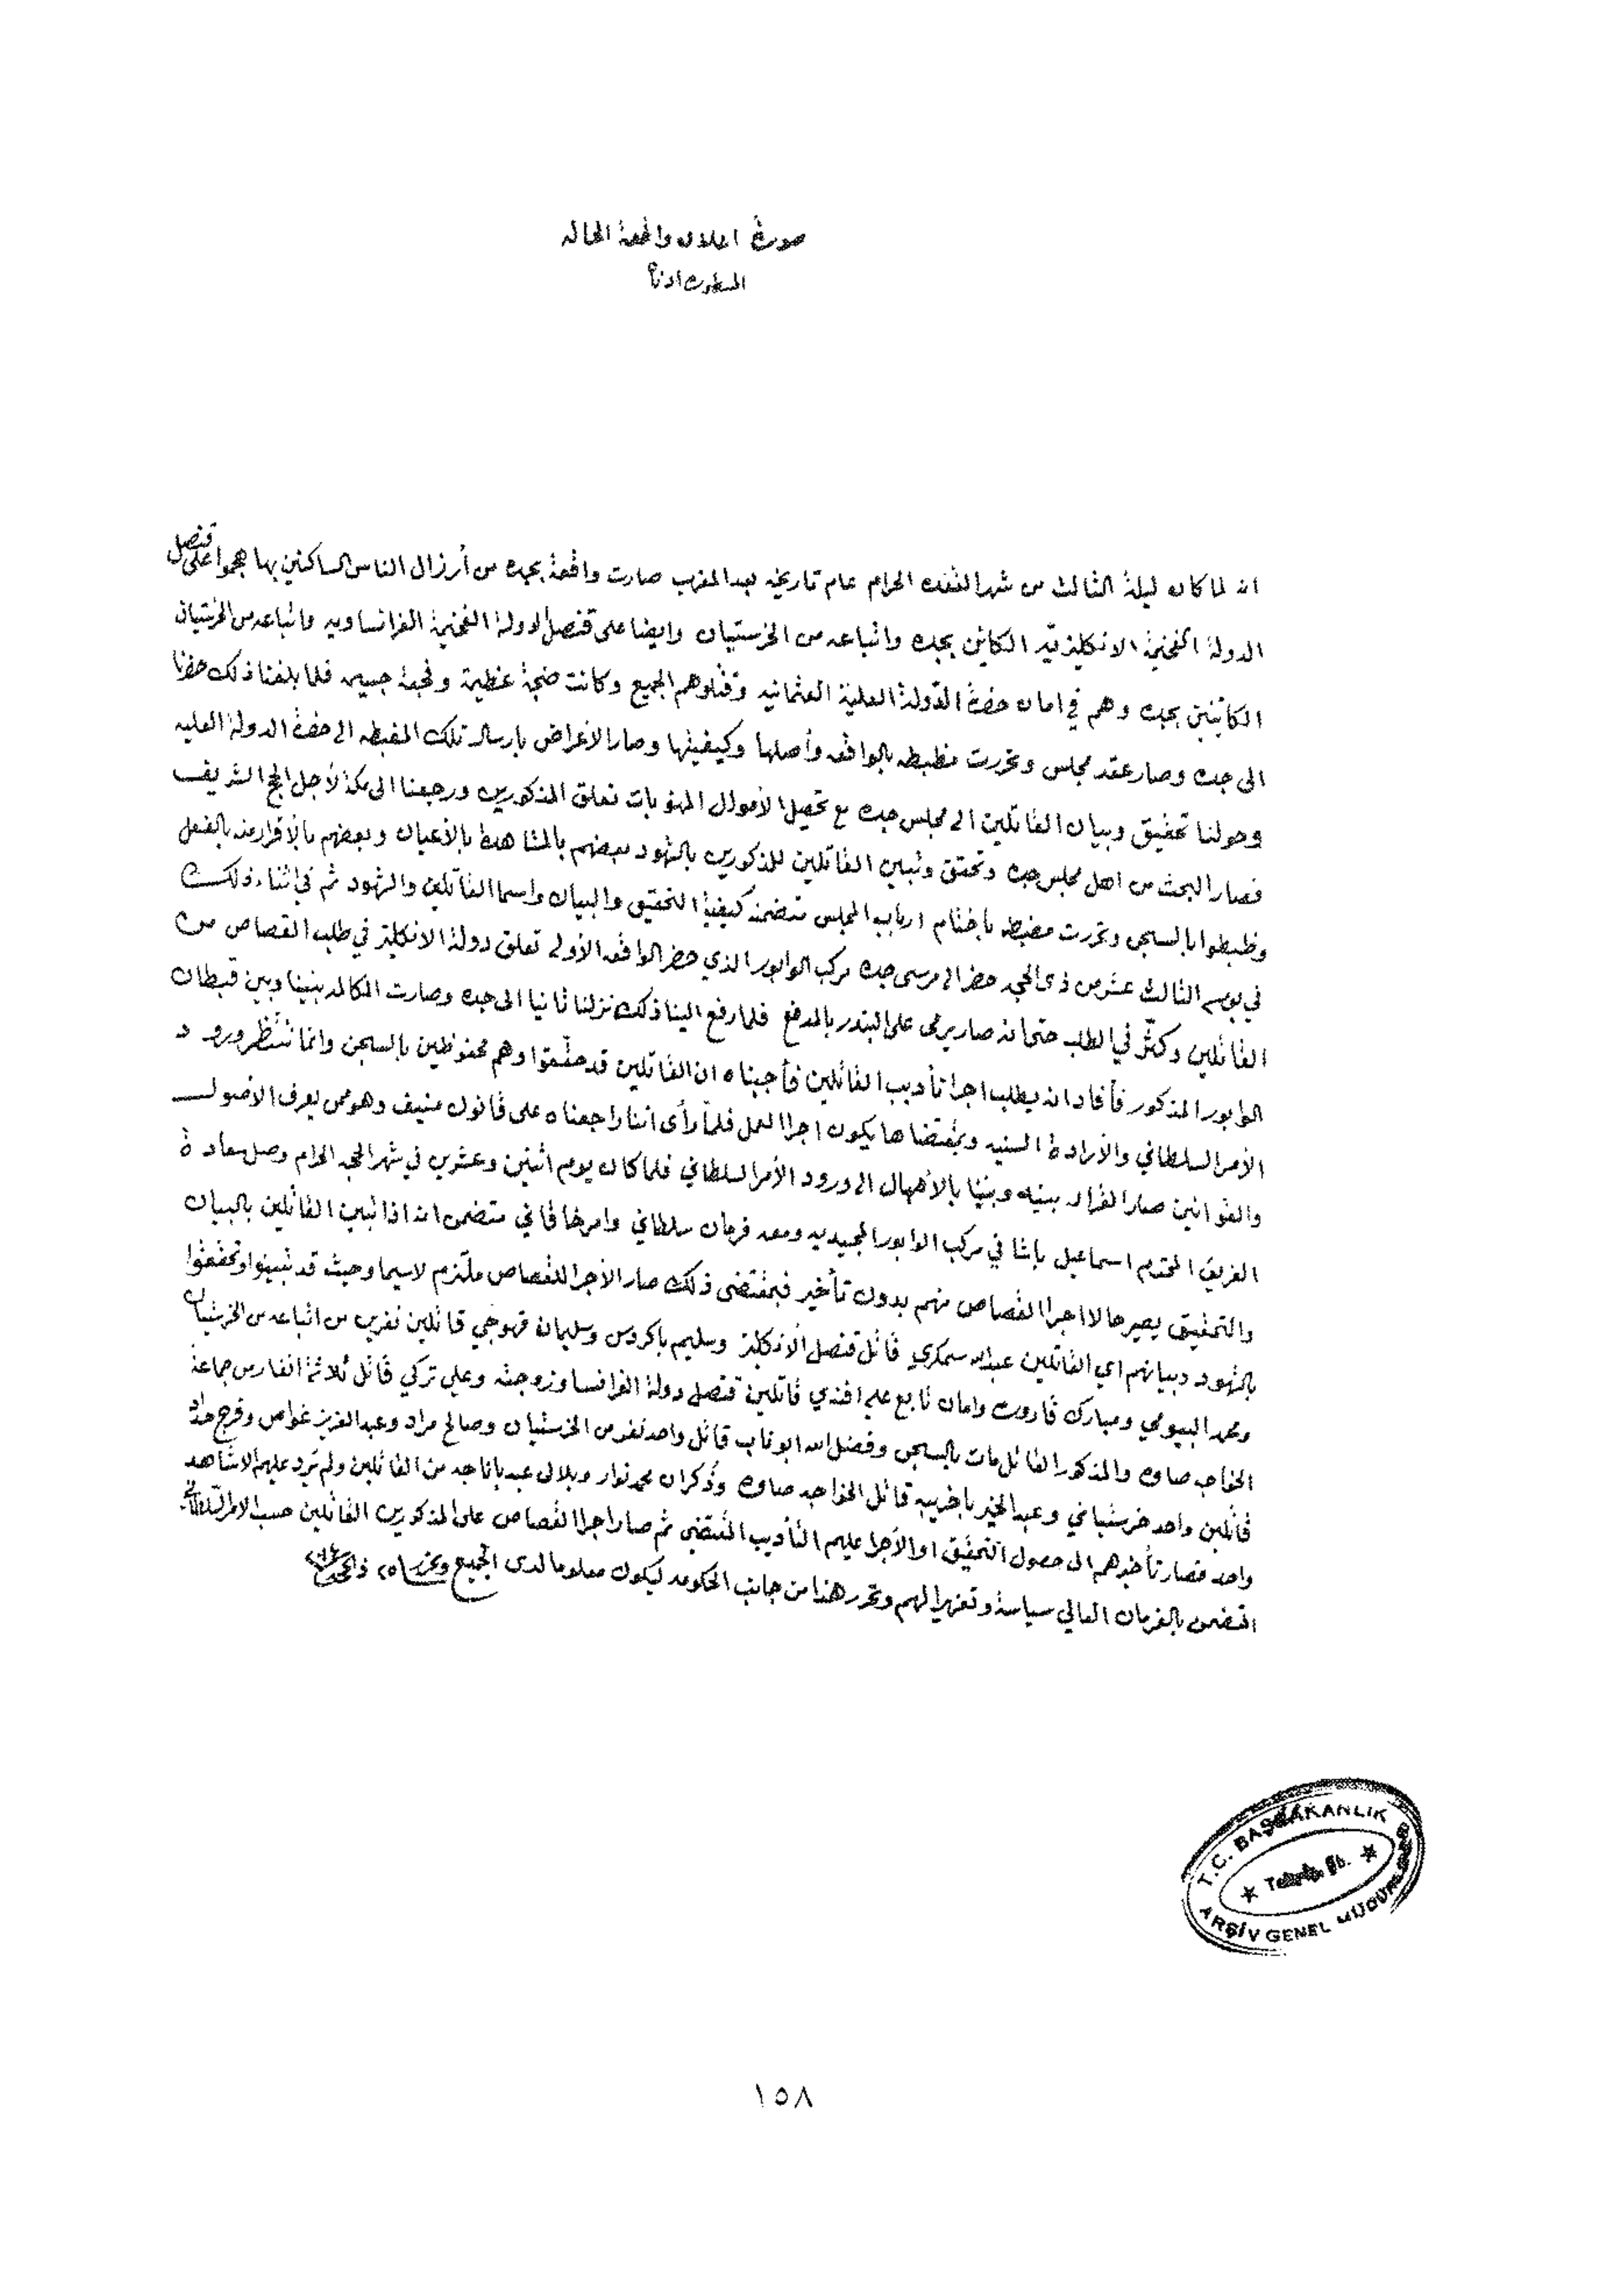 صورة اعلان واقعة الحال
المسطورة ادناه
انه لما كان ليلة الثالث من شهر القعده الحرام عام تاريخه بعد المغرب صارت واقعة بجده من أرزال الناس الساكنين بها هجموا على قنصل
الدولة الفخيمة الانكليزيّه الكائن بجده واتباعه من الخرستيان وايضا على قنصل الدولة الفخيمة الفرانساويه واتباعه من الخرستيان
الكائنين بجده وهم في امان حضرة الدّولة العلية العثمانيه وقتلوهم الجميع وكانت ضجة عظيمة وفجعة جسيمه فلما بلغنا ذلك حضرنا
الى جده وصار عقد مجلس وتحررت مظبطه بالواقعه وأصلها وكيفيتها وصار الاعراض بارسال تلك المضبطه الى حضرة الدولة العليه
وحولنا تحقيق وبيان القاتلين الى مجلس جده مع تحصيل الأموال المنهوبات تعلق المذكورين ورجعنا الى مكة لأجل الحج الشريف
فصار البحث من اهل مجلس جده وتحقق وتبين القاتلين للمذكورين بالشهود بعضهم بالمشاهدة بالأعيان وبعضهم بالأقرار عنه بالفعل
وظبطوا بالسجن وتحررت مضبطه بأختام ارباب المجلس متضمنه كيفية التحقيق والبيان واسما القاتلين والشهود ثم في اثناء ذلك
في يوم الثالث عشر من ذى الحجه حضر الى مرسى جده مركب الوابور الذي حضر الواقعه الأولى تعلق دولة الانكليز في طلب القصاص من
القاتلين وكثّر في الطلب حتى انه صار يرمى على البندر بالمدفع فلما رفع الينا ذلك نزلنا ثانيا الى جده وصارت المكالمه بيننا وبين قبطان
الوابور المذكور فأفاد انه يطلب اجرا تأديب القاتلين فأجبناه ان القاتلين قد حققوا وهم محفوظين بالسجن وانما ننتظر ورود
الأمر السلطاني والأرادة السنيه وبمقتضاها يكون اجرا العمل فلمّا رأى اننا راجعناه على قانون منيف وهو ممن يعرف الاصول
والقوانين صار القرار بينه وبيننا بالأمهال الى ورود الأمر السلطاني فلما كان يوم اثنين وعشرين في شهر الحجه الحرام وصل سعادة
الفريق المحترم اسماعيل باشا في مركب الوابور المجيديه ومعه فرمان سلطاني وامر خاقاني متضمن انه اذا تبين القاتلين بالبيان
والتحقيق يصير حالا اجرا القصاص منهم بدون تأخير فبمقتضى ذلك صار الأجرا للقصاص ملتزم لاسيما وحيث قد تبينوا وتحققوا
بالشهود وبيانهم اي القاتلين عبدالله سمكري قاتل قنصل الانكليز وسليم باكروس وسليمان قهوجي قاتلين نفرين من اتباعه من الخرستيان
ومحمد البيومي ومبارك قاروت وامان تابع علي افندي قاتلين قنصل دولة الفرانسا وزوجته وعلي تركي قاتل ثلاثة انفار من جماعة
الخواجه صاوه والمذكور القاتل مات بالسجن وفضل الله ابوناب قاتل واحد نفر من الخرستيان وصالح مراد وعبد العزيز غواص وفرج حداد
قاتلين واحد خرستياني وعبد الخير باخريبه قاتل الخواجه صاوه وذُكران محمد نوار وبلال عبد باناجه من القاتلين ولم ترد عليهم الا شاهد
واحد فصار تأخيرهم الى حصول التحقيق او الأجرا عليهم التأديب المقتضى ثم صار اجرا القصاص على المذكورين القاتلين حسب الامر السلطاني
المتضمن بالفرمان العالي سياسة وتعزيرا لهم وتحرر هذا من جانب الحكومه ليكون معلوما لدى الجميع وتحرر ٢٥ ذ الحجه
T.C. BAŞBAKANLIK
ARŞİV GENEL MÜDÜRLÜĞÜ
١٥٨